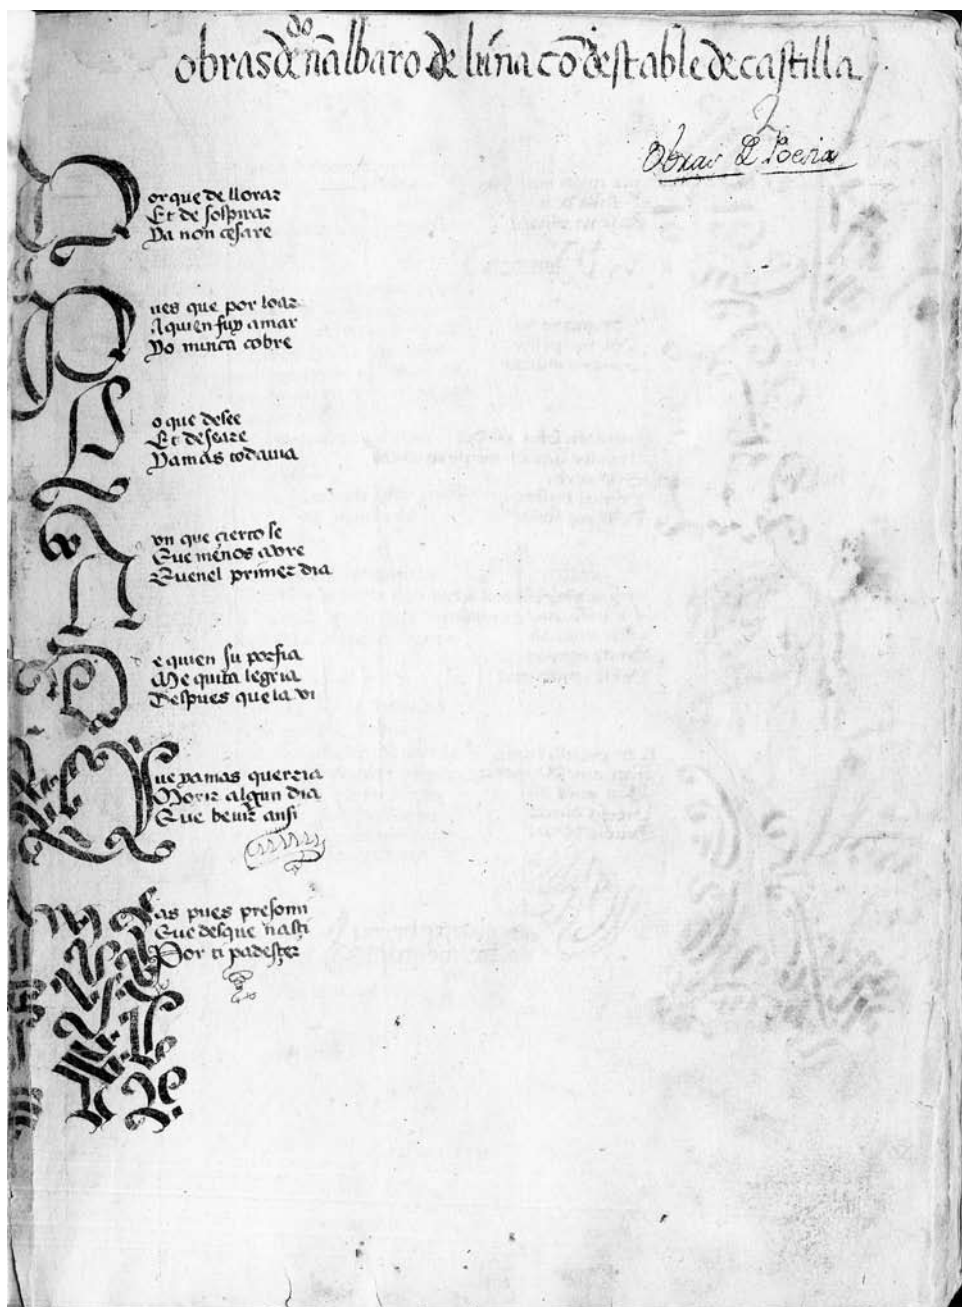 obras de don albaro de luna cõdestable de castilla
2
Obras D Poesia
Porque de llorar
Et de sospirar
Ya non çesare
Pues que por loar
A quien fuy amar
Yo nunca cobre
Lo que desee
Et deseare
Yamas todauia
Avn que çierto se
Que menos avre
Quenel primer dia
De quien su porfia
Me quita legria
Despues que la vi
Que yamas querria
Morir algun dia
Que bevir ansi
Mas pues presomi
Que desque nasçi
Por ti padesçer